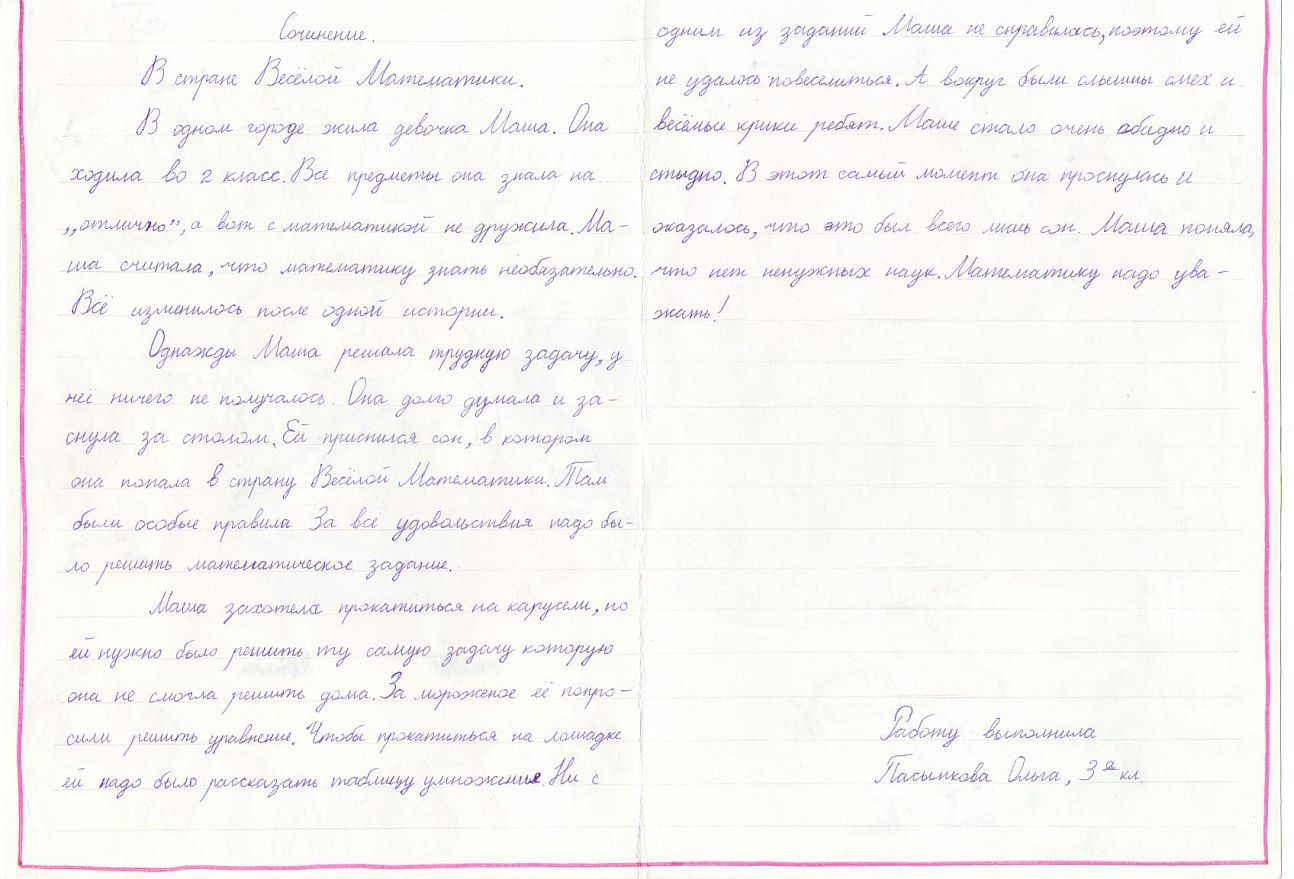 Сочинение.
В стране Весёлой Математики.
В одном городе жила девочка Маша. Она
ходила во 2 класс. Все предметы она знала на
„отлично”, а вот с математикой не дружила. Ма-
ша считала, что математику знать необязательно.
Всё изменилось после одной истории.
Однажды Маша решала трудную задачу, у
неё ничего не получалось. Она долго думала и за-
снула за столом. Ей приснился сон, в котором
она попала в страну Весёлой Математики. Там
были особые правила За всё удовольствия надо бы-
ло решить математическое задание.
Маша захотела прокатиться на карусели, но
ей нужно было решить ту самую задачу которую
она не смогла решить дома. За мороженое её попро-
сили решить уравнение. Чтобы прокатиться на лошадке
ей надо было рассказать таблицу умножения. Ни с
одним из заданий Маша не справилась, поэтому ей
не удалось повеселиться. А вокруг были слышны смех и
весёлые крики ребят. Маше стало очень обидно и
стыдно. В этот самый момент она проснулась и
оказалось, что это был всего лишь сон. Маша поняла,
что нет ненужных наук. Математику надо ува-
жать!
Работу выполнила
Пасынкова Ольга, 3 кл.